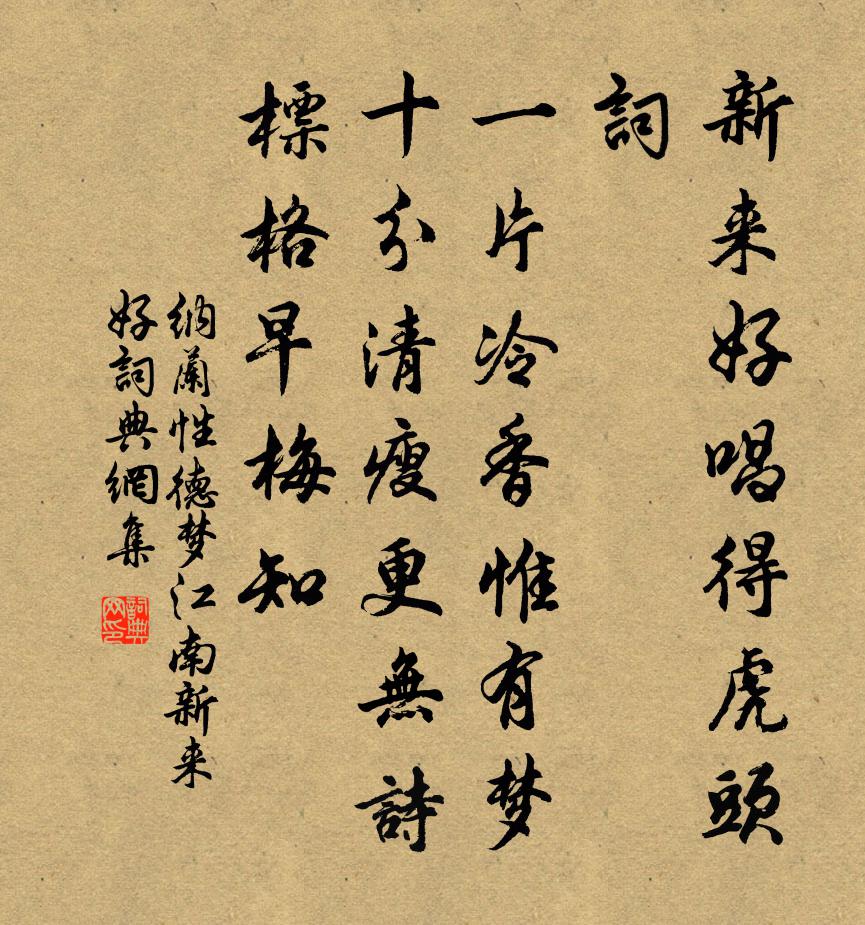 新来好唱得虎頭
詞
一片冷香惟有梦
十分清瘦更無詩
標格早梅知
纳蘭性德梦江南新来
好詞典網集
詞典
网印